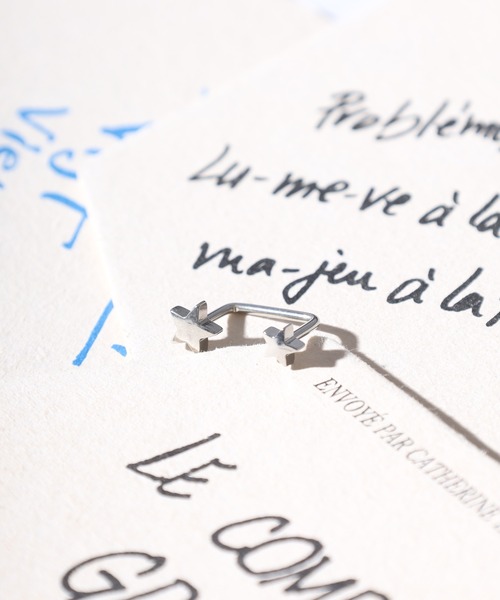 Problème
Lu-me-ve à la
ma-jeu à la
ENVOYÉ PAR CATHERINE
LE
COMP